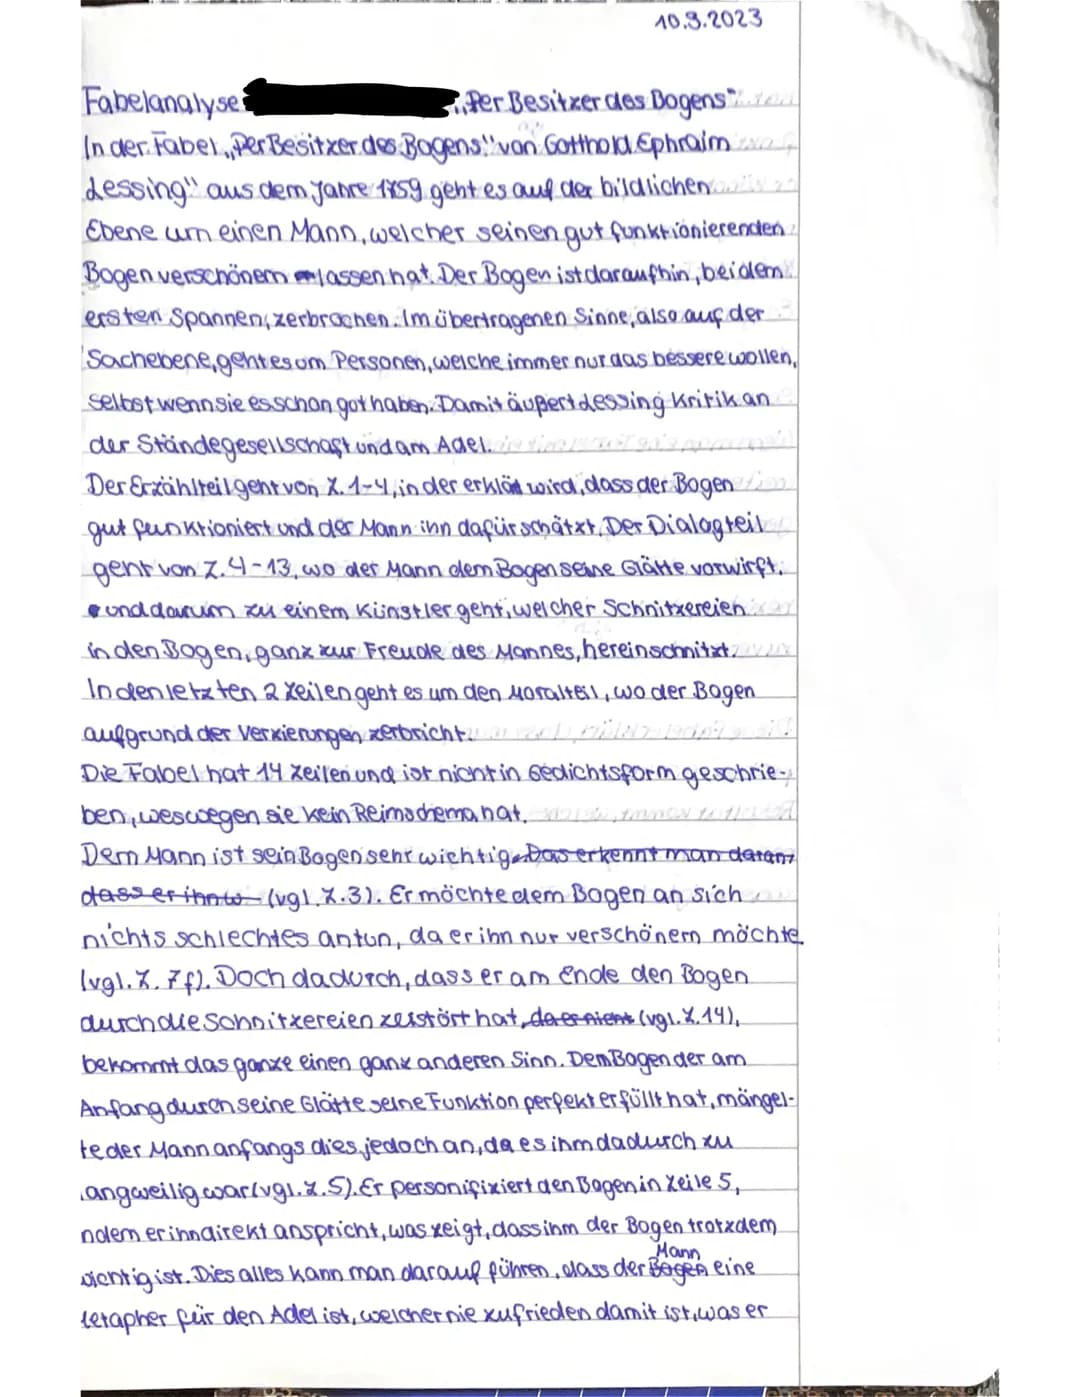 10.3.2023
Fabelanalyse „Der Besitzer des Bogens"
In der Fabel „Der Besitzer des Bogens" von Gotthold Ephraim
Lessing" aus dem Jahre 1759 geht es auf der bildlichen
Ebene um einen Mann, welcher seinen gut funktionierenden
Bogen verschönern lassen hat. Der Bogen ist daraufhin, bei dem
ersten Spannen, zerbrochen. Im übertragenen Sinne, also auf der
Sachebene, geht es um Personen, welche immer nur das bessere wollen,
selbst wenn sie es schon gut haben. Damit äußert Lessing Kritik an
der Ständegesellschaft und am Adel.
Der Erzählteil geht von Z. 1-4, in der erklärt wird, dass der Bogen
gut funktioniert und der Mann ihn dafür schätzt. Der Dialogteil
geht von Z. 4-13, wo der Mann dem Bogen seine Glätte vorwirft.
und darum zu einem Künstler geht, welcher Schnitzereien
in den Bogen, ganz zur Freude des Mannes, hereinschnitzt.
In den letzten 2 Zeilen geht es um den Moralteil, wo der Bogen
aufgrund der Verzierungen zerbricht.
Die Fabel hat 14 Zeilen und ist nicht in Gedichtsform geschrie-
ben, weswegen sie kein Reimschema hat.
Dem Mann ist sein Bogen sehr wichtig. Das erkennt man daran,
dass er ihn w (vgl. Z. 3). Er möchte dem Bogen an sich
nichts schlechtes antun, da er ihn nur verschönern möchte
(vgl. Z. 7 f). Doch dadurch, dass er am Ende den Bogen
durch die Schnitzereien zerstört hat, da er nicht (vgl. Z. 14),
bekommt das ganze einen ganz anderen Sinn. Dem Bogen der am
Anfang durch seine Glätte seine Funktion perfekt erfüllt hat, mängel-
te der Mann anfangs dies jedoch an, da es ihm dadurch zu
angweilig war (vgl. Z. 5). Er personifiziert den Bogen in Zeile 5,
ndem er ihn direkt anspricht, was zeigt, dass ihm der Bogen trotzdem
wichtig ist. Dies alles kann man darauf führen, dass der Bogen Mann eine
etapher für den Adel ist, welcher nie zufrieden damit ist, was er